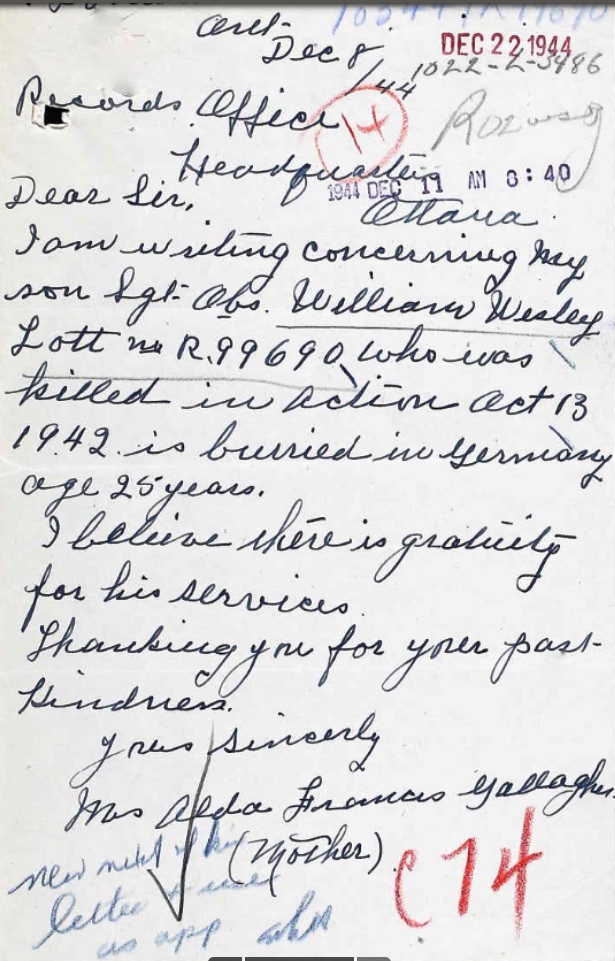 Ont.
Dec 8
/44
DEC 22 1944
1022-L-5486
Records Office
14
Headquarters
1944 DEC 11 AM 8:40
Ottawa
Dear Sir,
I am writing concerning my
son Sgt. Obs. William Wesley
Lott no R.99690 who was
killed in action Oct 13
1942. is burried in Germany
age 25 years.
I believe there is gratuity
for his services.
Thanking you for your past
kindness.
Yours Sincerly
Mrs Alda Francis Gallagher
(Mother)
C14
new next of kin
letter
as app